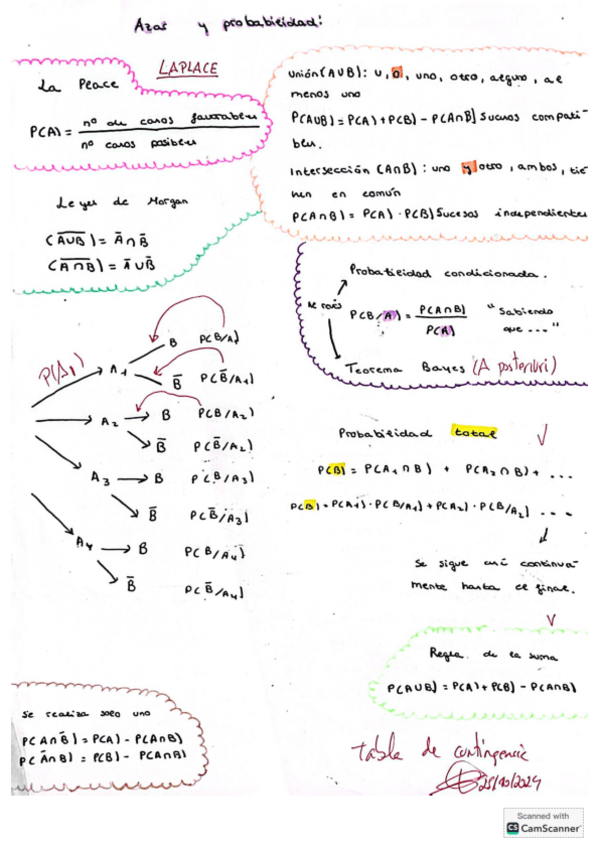 Azar y probabilidad:
LAPLACE
La Place
P(A) = nº de casos favorables
nº casos posibles
Unión (A∪B): u, o, uno, otro, alguno, al
menos uno
P(A∪B) = P(A) + P(B) - P(A∩B) Sucesos compati-
bles.
Intersección (A∩B): uno y otro, ambos, tie
nen en común
P(A∩B) = P(A) · P(B) Sucesos independientes
Leyes de Morgan
(A̅∪̅B̅) = A̅ ∩ B̅
(A̅∩̅B̅) = A̅ ∪ B̅
Probabilidad condicionada.
P(B/A) = P(A∩B)
P(A)
"Sabiendo
que ..."
Teorema Bayes (A posteriori)
P(A₁)
A₁ B P(B/A₁)
B̅ P(B̅/A₁)
A₂ B P(B/A₂)
B̅ P(B̅/A₂)
A₃ B P(B/A₃)
B̅ P(B̅/A₃)
A₄ B P(B/A₄)
B̅ P(B̅/A₄)
Probabilidad total
P(B) = P(A₁∩B) + P(A₂∩B) + ...
P(B) = P(A₁) · P(B/A₁) + P(A₂) · P(B/A₂) ...
Se sigue así continua
mente hasta el final.
Regla de la suma
P(A∪B) = P(A) + P(B) - P(A∩B)
Se realiza solo uno
P(A∩B̅) = P(A) - P(A∩B)
P(A̅∩B) = P(B) - P(A∩B)
tabla de contingencia
25/10/2024
Scanned with
CS CamScanner